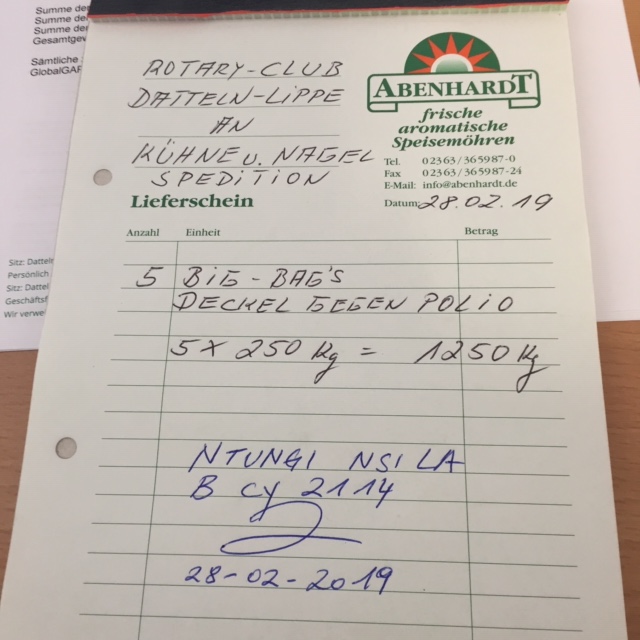 Summe der
Summe der
Summe der
Gesamtgev
Sämtliche
GlobalGAP
ROTARY-CLUB
DATTELN-LIPPE
AN
KÜHNE U. NAGEL
SPEDITION
ABENHARDT
frische
aromatische
Speisemöhren
Tel. 02363/365987-0
Fax 02363/365987-24
E-Mail: info@abenhardt.de
Lieferschein
Datum: 28.02.19
Anzahl Einheit Betrag
5 BIG-BAG'S
DECKEL GEGEN POLIO
5 X 250 Kg = 1250 Kg
NTUNGI NSILA
B cy 2114
28-02-2019
Sitz: Datteln
Persönlich
Sitz: Dattel
Geschäftsf
Wir verwe